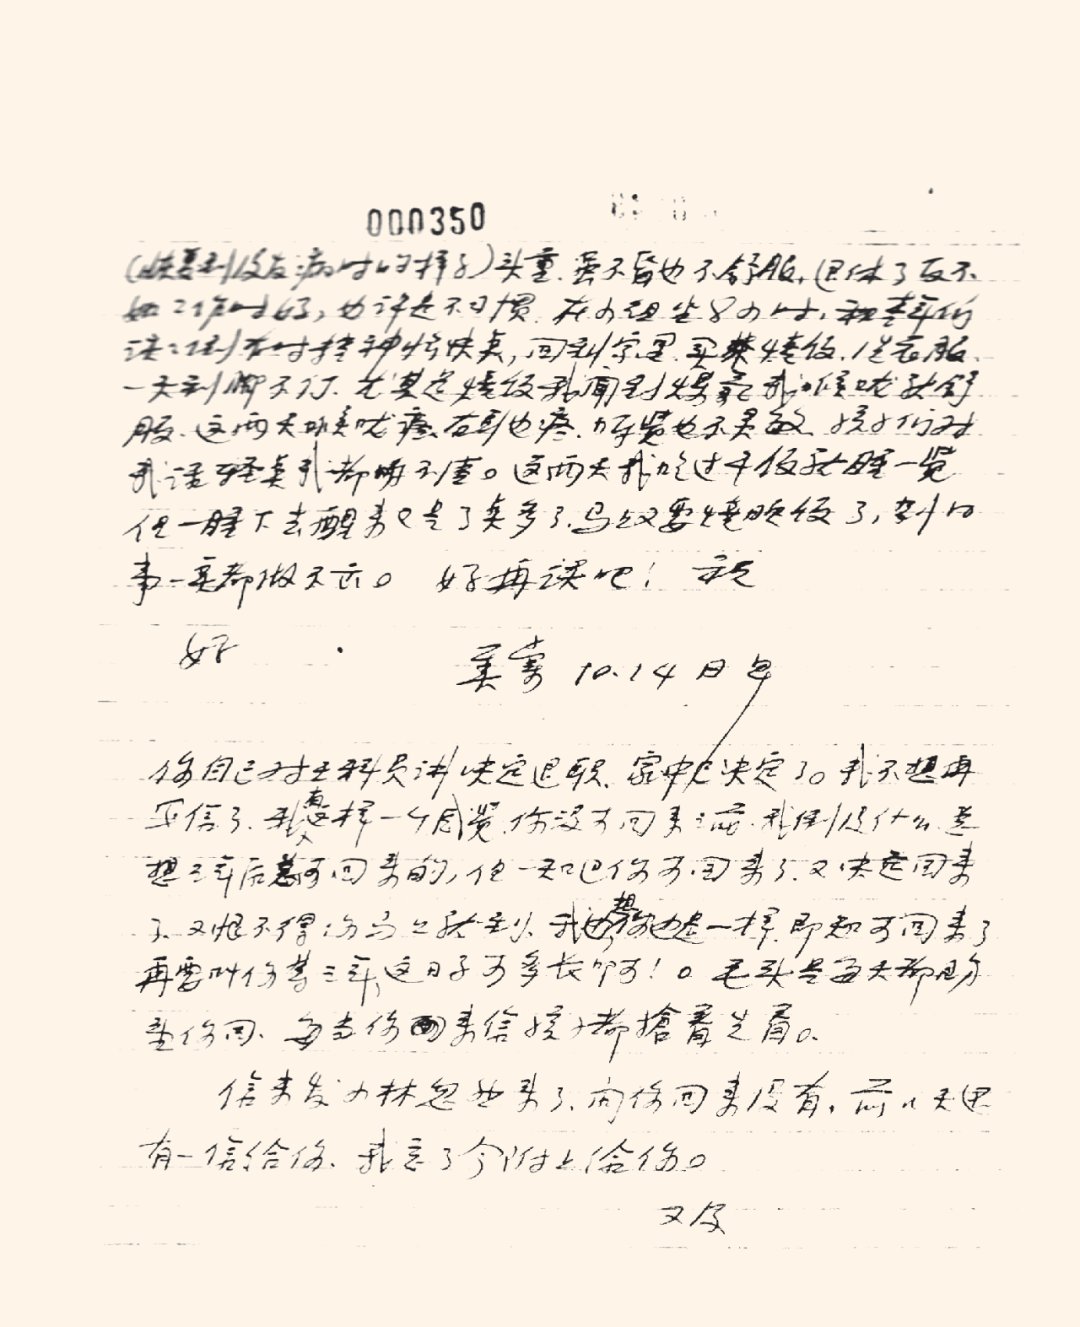 000350
(恢复到没有病时的样子)头重、蛋不皆也不舒服,退休了反不
如工作时好,也许是不习惯。在小组坐8小时,和青年们
谈谈倒有时精神愉快点,回到家里、买菜烧饭、洗衣服、
一天到脚不停、尤其是烧饭我闻到煤气我喉咙就舒
服、这两天喉咙疼、右耳也疼、听觉也不灵敏、孩子们对
我话轻点我都听不清。这两天我吃过午饭就睡一觉
但一睡下去醒来已是了点多了、马上又要烧晚饭了,别的
事一点都做不去。 好再谈吧! 祝
好
英 寄 10.14 日
你自己对王科员讲决定退职、家中已决定了。我不想再
写信了、我真这样一个感觉、你没可回来之前、我倒没什么、总
想三年后总可回来的,但一知道你可回来了、又决定回来
了、又恨不得你马上就到、我也想你也是一样、即知可回来了
再要叫你等三年,这日子可多长啊! 。毛头是每天都盼
望你回、每当你来信孩子都抢着先看。
信未发小林忽然来了、问你回来没有,前几天还
有一信给你、我忘了今附上给你。
又及